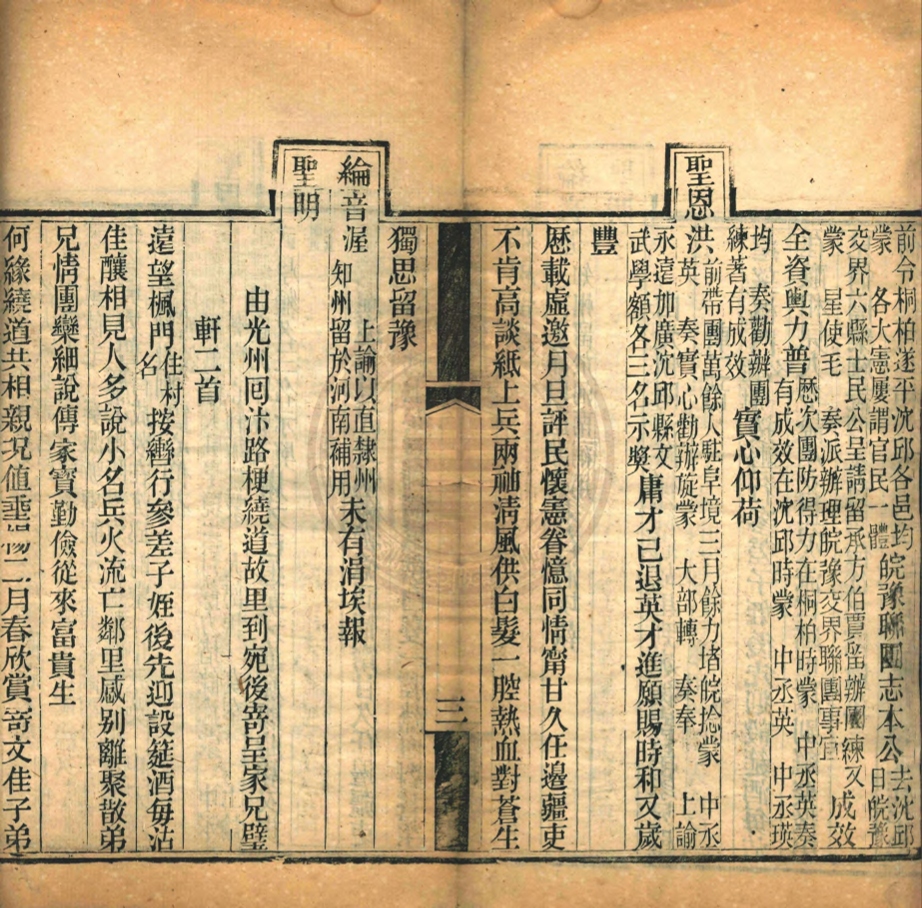 前令桐柏遂平沈邱各邑均
蒙 各大憲屢謂官民一體
皖豫聯團志本公
去沈邱
日皖豫
交界六縣士民公呈請留承方伯賈留辦團練又
蒙 星使毛 奏派辦理皖豫交界聯團事宜 成效
全資輿力普
歷次團防得力在桐柏時蒙 中丞英奏
有成效在沈邱時蒙 中丞英 中丞瑛
均 奏勸辦團
練著有成效
實心仰荷
聖恩洪
前帶團萬餘人駐阜境三月餘力堵皖捻蒙 中丞
英 奏實心勸辦旋蒙 大部轉 奏奉 上諭
永遠加廣沈邱縣文
武學額各三名示獎
庸才已退英才進願賜時和又歲
豐
歷載虛邀月旦評民懷憲眷憶同情甯甘久任邊疆吏
不肯高談紙上兵兩袖清風供白髮一腔熱血對蒼生
三
獨思留豫
綸音渥
上諭以直隸州
知州留於河南補用
未有涓埃報
聖明
由光州囘汴路梗繞道故里到宛後寄呈家兄璧
軒二首
遠望楓門
住村
名
按轡行參差子姪後先迎設筵酒每沽
佳釀相見人多說小名兵火流亡鄰里感别離聚散弟
兄情團欒細說傳家寶勤儉從來富貴生
何緣繞道共相親況值垂楊二月春欣賞奇文佳子弟